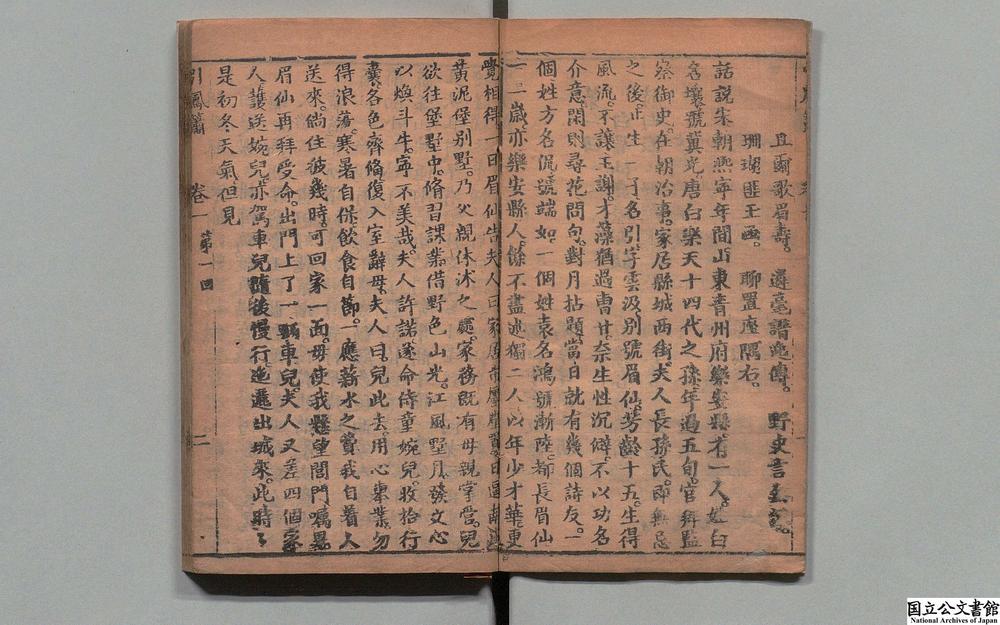 且爾歌眉壽。　遐毫譜逸傳。　野史言
珊瑚匪玉画。　聊置座隅右。
話説宋朝熙寧年間山東青州府樂安縣有一人。姓白
名壤號冀光唐白樂天十四代之孫年過五旬官拜監
察御史在朝治事。家居縣城西街。夫人長孫氏。即無忌
之後。止生一子名引字雲汲別號眉仙。芳齡十五。生得
風流。不讓王謝。才藻猶過曹甘。奈生性沉僻。不以功名
介意。閑則尋花問句。對月拈題。當日就有幾個詩友。一
個姓方名侃號端如。一個姓袁名鴻號漸陸。都長眉仙
一二歲亦樂安縣人。餘不盡述獨二人以年少才華更
覺相得。一日眉仙告夫人曰家居市
黃泥堡別墅。乃父親休沐之處。家務既有母親掌管。兒
欲往堡墅中。脩習課業借野色山光。江風墅月。發文心
以煥斗牛。寧不美哉。夫人許諾遂命侍童婉兒。收拾行
囊。各色齊備復入室辭母。夫人曰。兒此去。用心舉業勿
得浪蕩。寒暑自保。飲食自節。一應薪水之費我自着人
送來。倘住彼幾時。可回家一面。毋使我懸望閭門。囑畢
眉仙再拜受命。出門上了一輛車兒。夫人又差四個家
人護送婉兒亦駕車兒隨後慢行。迤邐出城來。此時
是初冬天氣但見
引鳳簫　卷一　第一回　二
国立公文書館
National Archives of Japan